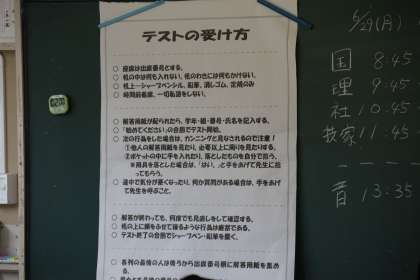 テストの受け方
○ 座席は出席番号とする。
○ 机の中は何も入れない。机のわきには何もかけない。
○ 机上…シャープペンシル、鉛筆、消しゴム、定規のみ
○ 時間前着席、一切私語をしない。
○ 解答用紙が配られたら、学年・組・番号・氏名を記入する。
○ 「始めてください」の合図でテスト開始。
○ 次の行為をした場合は、カンニングと見なされるので注意！
①他人の解答用紙を見たり、必要以上に周りを見たりする。
②ポケットの中に手を入れたり、落としたものを自分で拾う。
※用具を落とした場合は、「はい」と手をあげて先生に拾
ってもらう。
○ 途中で気分が悪くなったり、何か質問がある場合は、手をあげ
て先生を呼ぶこと。
○ 解答が終わっても、何度でも見直しをして確認する。
○ 机の上に顔をふせて寝るような行為は厳禁である。
○ テスト終了の合図でシャープペン・鉛筆を置く。
○ 各列の最後の人は後ろから出席番号順に解答用紙を集め
る。
5/29(月)
国 8:45
理 9:45
社 10:45
技家 11:45
音 13:35